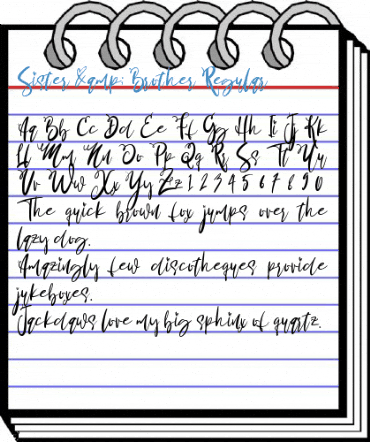 Sister &amp; Brother Regular
Aa Bb Cc Dd Ee Ff Gg Hh Ii Jj Kk
Ll Mm Nn Oo Pp Qq Rr Ss Tt Uu
Vv Ww Xx Yy Zz 1 2 3 4 5 6 7 8 9 0
The quick brown fox jumps over the
lazy dog.
Amazingly few discotheques provide
jukeboxes.
Jackdaws love my big sphinx of quartz.